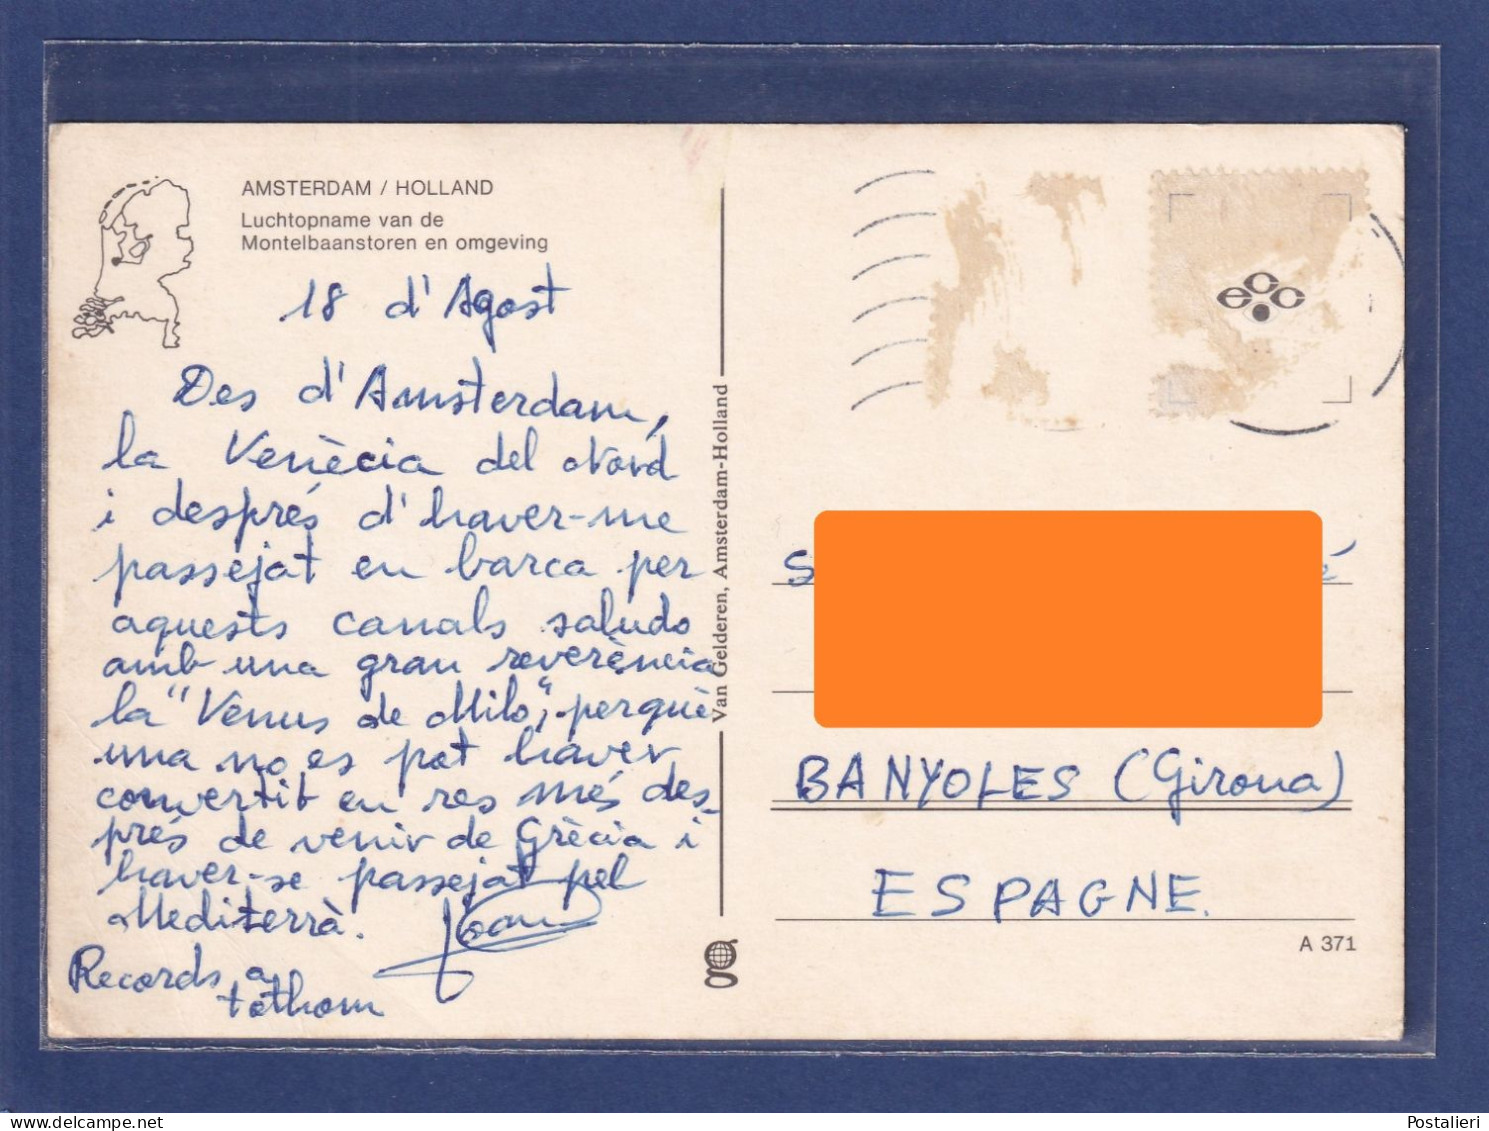 AMSTERDAM / HOLLAND
Luchtopname van de
Montelbaanstoren en omgeving
18 d'Agost
Des d'Amsterdam,
la Venècia del Nord
i després d'haver-me
passejat en barca per
aquests canals saludo
amb una gran reverència
la "Vènus de Milo", perquè
una no es pot haver
convertit en res més des-
prés de venir de Grècia i
haver-se passejat pel
Mediterrà.
Joan
Records a
tothom
Van Gelderen, Amsterdam-Holland
ecc
S
é
BANYOLES (Girona)
ESPAGNE.
A 371
delcampe.net
Postalieri